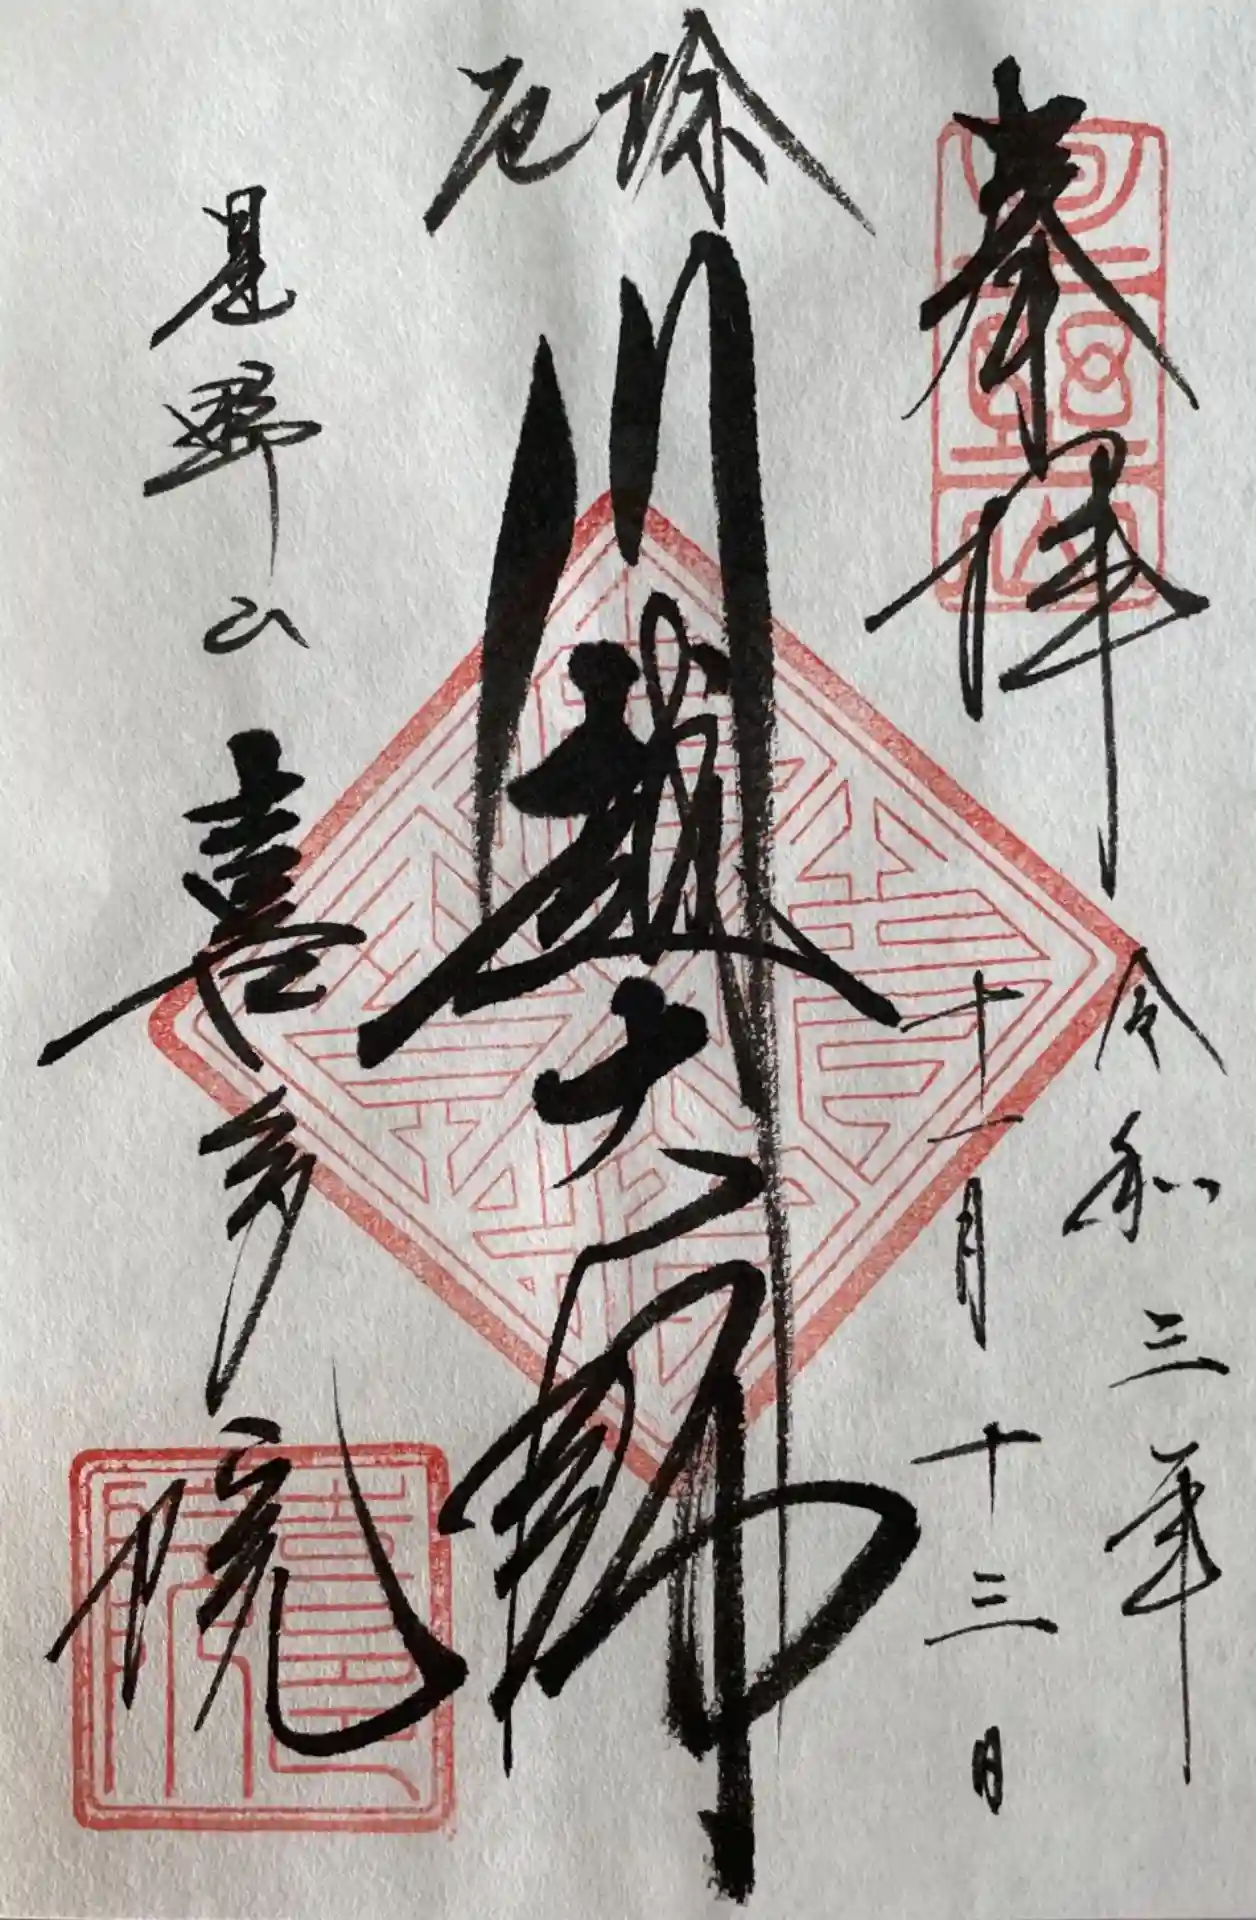 奉拝
令和三年
十一月十三日
厄除
川越大師
星野山 喜多院